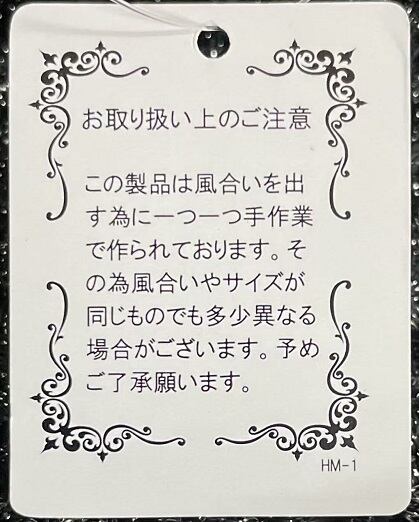 お取り扱い上のご注意
この製品は風合いを出
す為に一つ一つ手作業
で作られております。そ
の為風合いやサイズが
同じものでも多少異なる
場合がございます。予め
ご了承願います。
HM-1